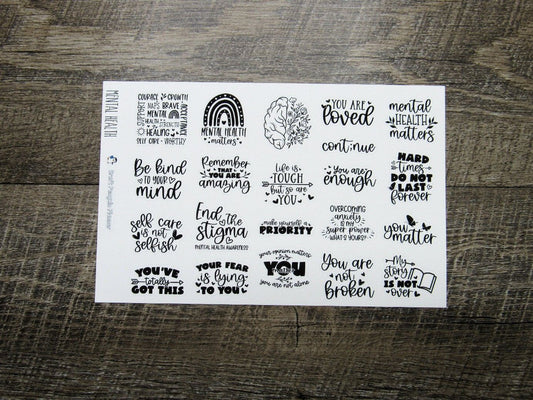 MENTAL HEALTH
COURAGE GROWTH
SUPPORT
NAPS BRAVE
MENTAL
HEALTH STRENGTH
HEALING
SELF CARE WORTHY
ACCEPTANCE
MENTAL HEALTH
matters
YOU ARE
loved
continue
mental
HEALTH
matters
Be kind
TO YOUR
mind
Remember
THAT YOU ARE
amazing
Life is
TOUGH
but so are
YOU
You are
enough
HARD
times
DO NOT
LAST
forever
self care
is not
selfish
End the
stigma
MENTAL HEALTH AWARENESS
make yourself a
PRIORITY
OVERCOMING
anxiety
IS MY
super power
WHAT'S YOURS?
you
matter
YOU'VE
totally
GOT THIS
YOUR FEAR
is lying
TO YOU
your opinion matters
YOU
you are not alone
You are
not
broken
My
story
IS NOT
over